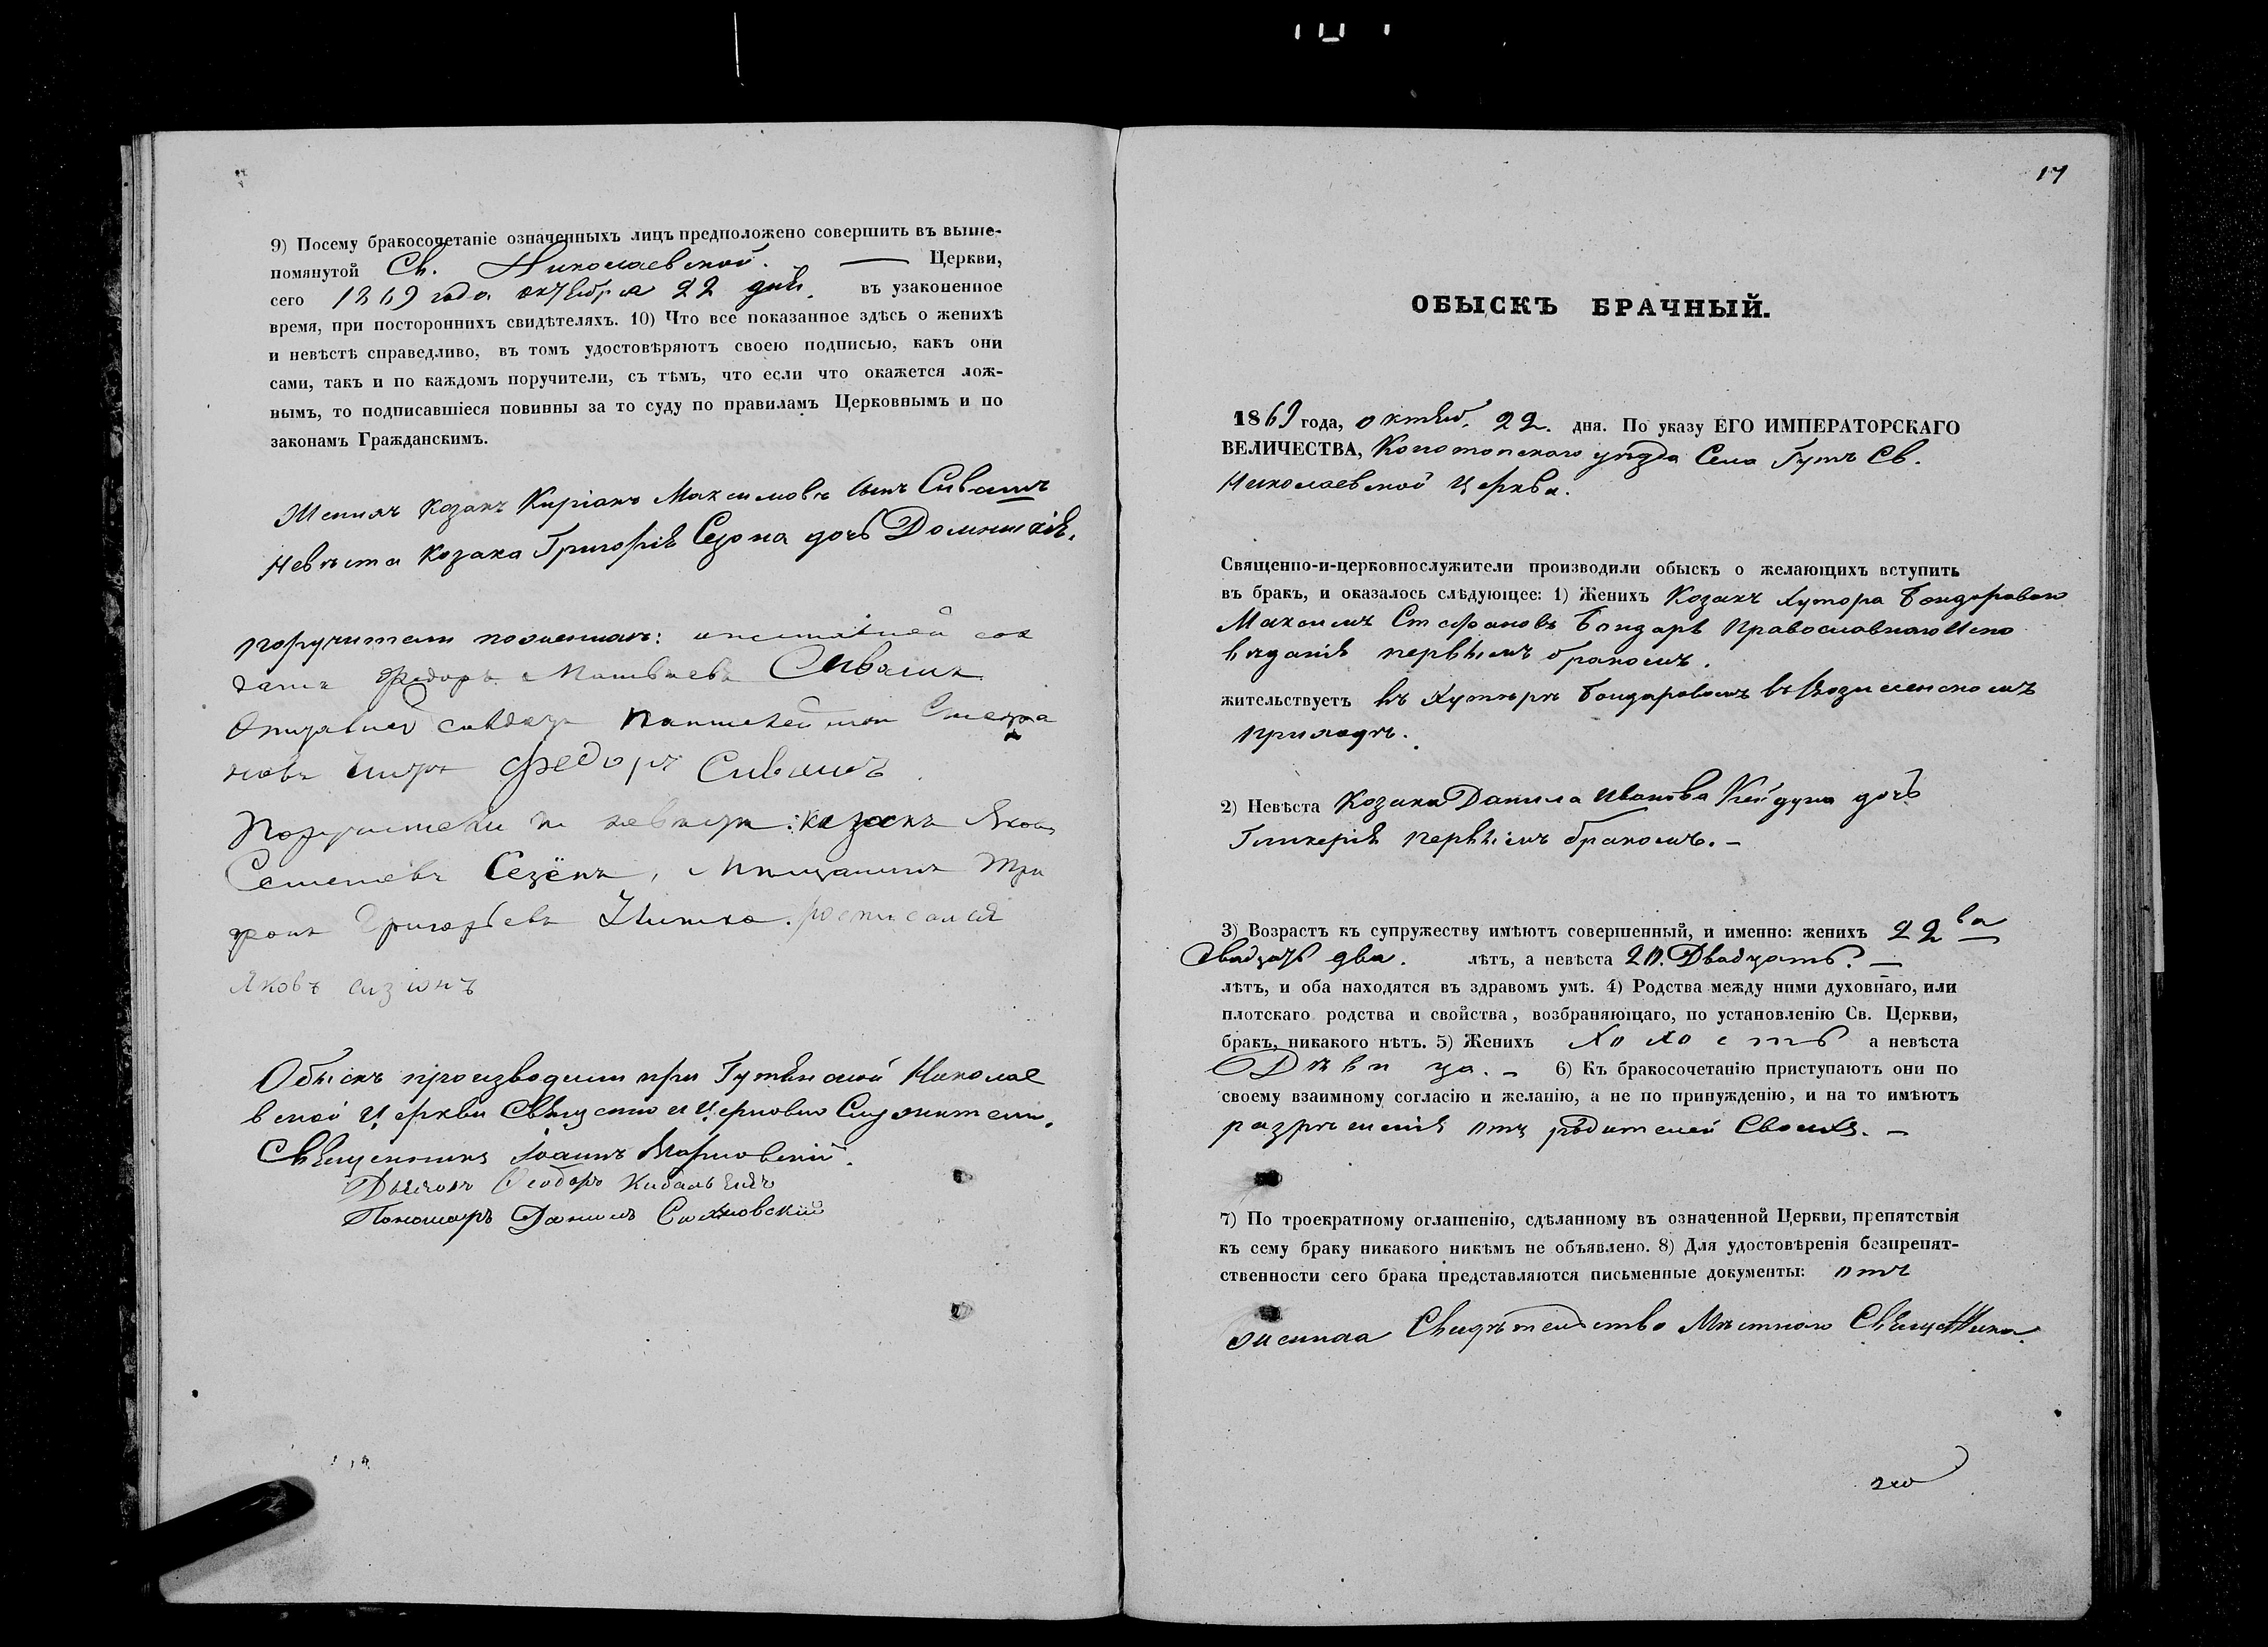 9) Посему бракосочетаніе означенныхъ лицъ предположено совершить въ выше-
помянутой Св. Николаевской. — Церкви,
сего 1869 года октября 22 дня. въ узаконенное
время, при постороннихъ свидѣтеляхъ. 10) Что все показанное здѣсь о женихѣ
и невѣстѣ справедливо, въ томъ удостовѣряютъ своею подписью, какъ они
сами, такъ и по каждомъ поручители, съ тѣмъ, что если что окажется лож-
нымъ, то подписавшіеся повинны за то суду по правиламъ Церковнымъ и по
законамъ Гражданскимъ.
Женихъ козакъ Киріакъ Максимовъ сынъ Сивашъ
Невѣста козака Григорія Сезона дочь Домникія.
поручители по женихѣ:
Федоръ Матвѣевъ Сивашъ
Федоръ Сивашъ
Поручители по невѣсте: козакъ Яковъ
Семеновъ Сезёнъ, Мѣщанинъ Три
фонъ Григорьевъ росписался
Яковъ сизіонъ
Обыскъ производили при Гутянской Николае
вской церкви Священно и Церковно Служители.
Священникъ Іоаннъ
Дьячокъ Ѳеодоръ
Пономарь Даніилъ
17
ОБЫСКЪ БРАЧНЫЙ.
1869 года, октяб. 22. дня. По указу ЕГО ИМПЕРАТОРСКАГО
ВЕЛИЧЕСТВА, Конотопскаго уѣзда Села Гутъ Св.
Николаевской церкви.
Священно-и-церковнослужители производили обыскъ о желающихъ вступить
въ бракъ, и оказалось слѣдующее: 1) Женихъ Козакъ Хутора Бондароваго
Максимъ Стефановъ Бондарь Православнаго Испо
вѣданія первымъ бракомъ.
жительствуетъ въ Хуторѣ Бондаровомъ въ Вознесенскомъ
приходѣ.
2) Невѣста Козака Данила Иванова Кейдуна дочь
Гликерія первымъ бракомъ. —
3) Возрастъ къ супружеству имѣютъ совершенный, и именно: женихъ 22 ва
двадцать два. лѣтъ, а невѣста 20. Двадцать. —
лѣтъ, и оба находятся въ здравомъ умѣ. 4) Родства между ними духовнаго, или
плотскаго родства и свойства, возбраняющаго, по установленію Св. Церкви,
бракъ, никакого нѣтъ. 5) Женихъ Холостъ а невѣста
Дѣвица. — 6) Къ бракосочетанію приступаютъ они по
своему взаимному согласію и желанію, а не по принужденію, и на то имѣютъ
разрѣшенія отъ родителей Своихъ. —
7) По троекратному оглашенію, сдѣланному въ означенной Церкви, препятствія
къ сему браку никакого никѣмъ не объявлено. 8) Для удостовѣренія безпрепят-
ственности сего брака представляются письменные документы: отъ
жениха Свидѣтельство Мѣстнаго Священника.